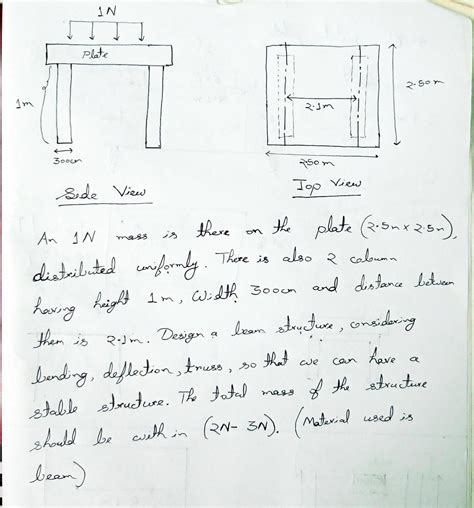 1N
Plate
1m
300cm
Side View
2.1m
2.50m
2.50m
Top View
An 1N mass is there on the plate (2.5m x 2.5m),
distributed uniformly. There is also 2 column
having height 1m, Width 300cm and distance between
them is 2.1m. Design a beam structure, considering
bending, deflection, truss, so that we can have a
stable structure. The total mass of the structure
should be with in (2N-3N). (Material used is
beam)